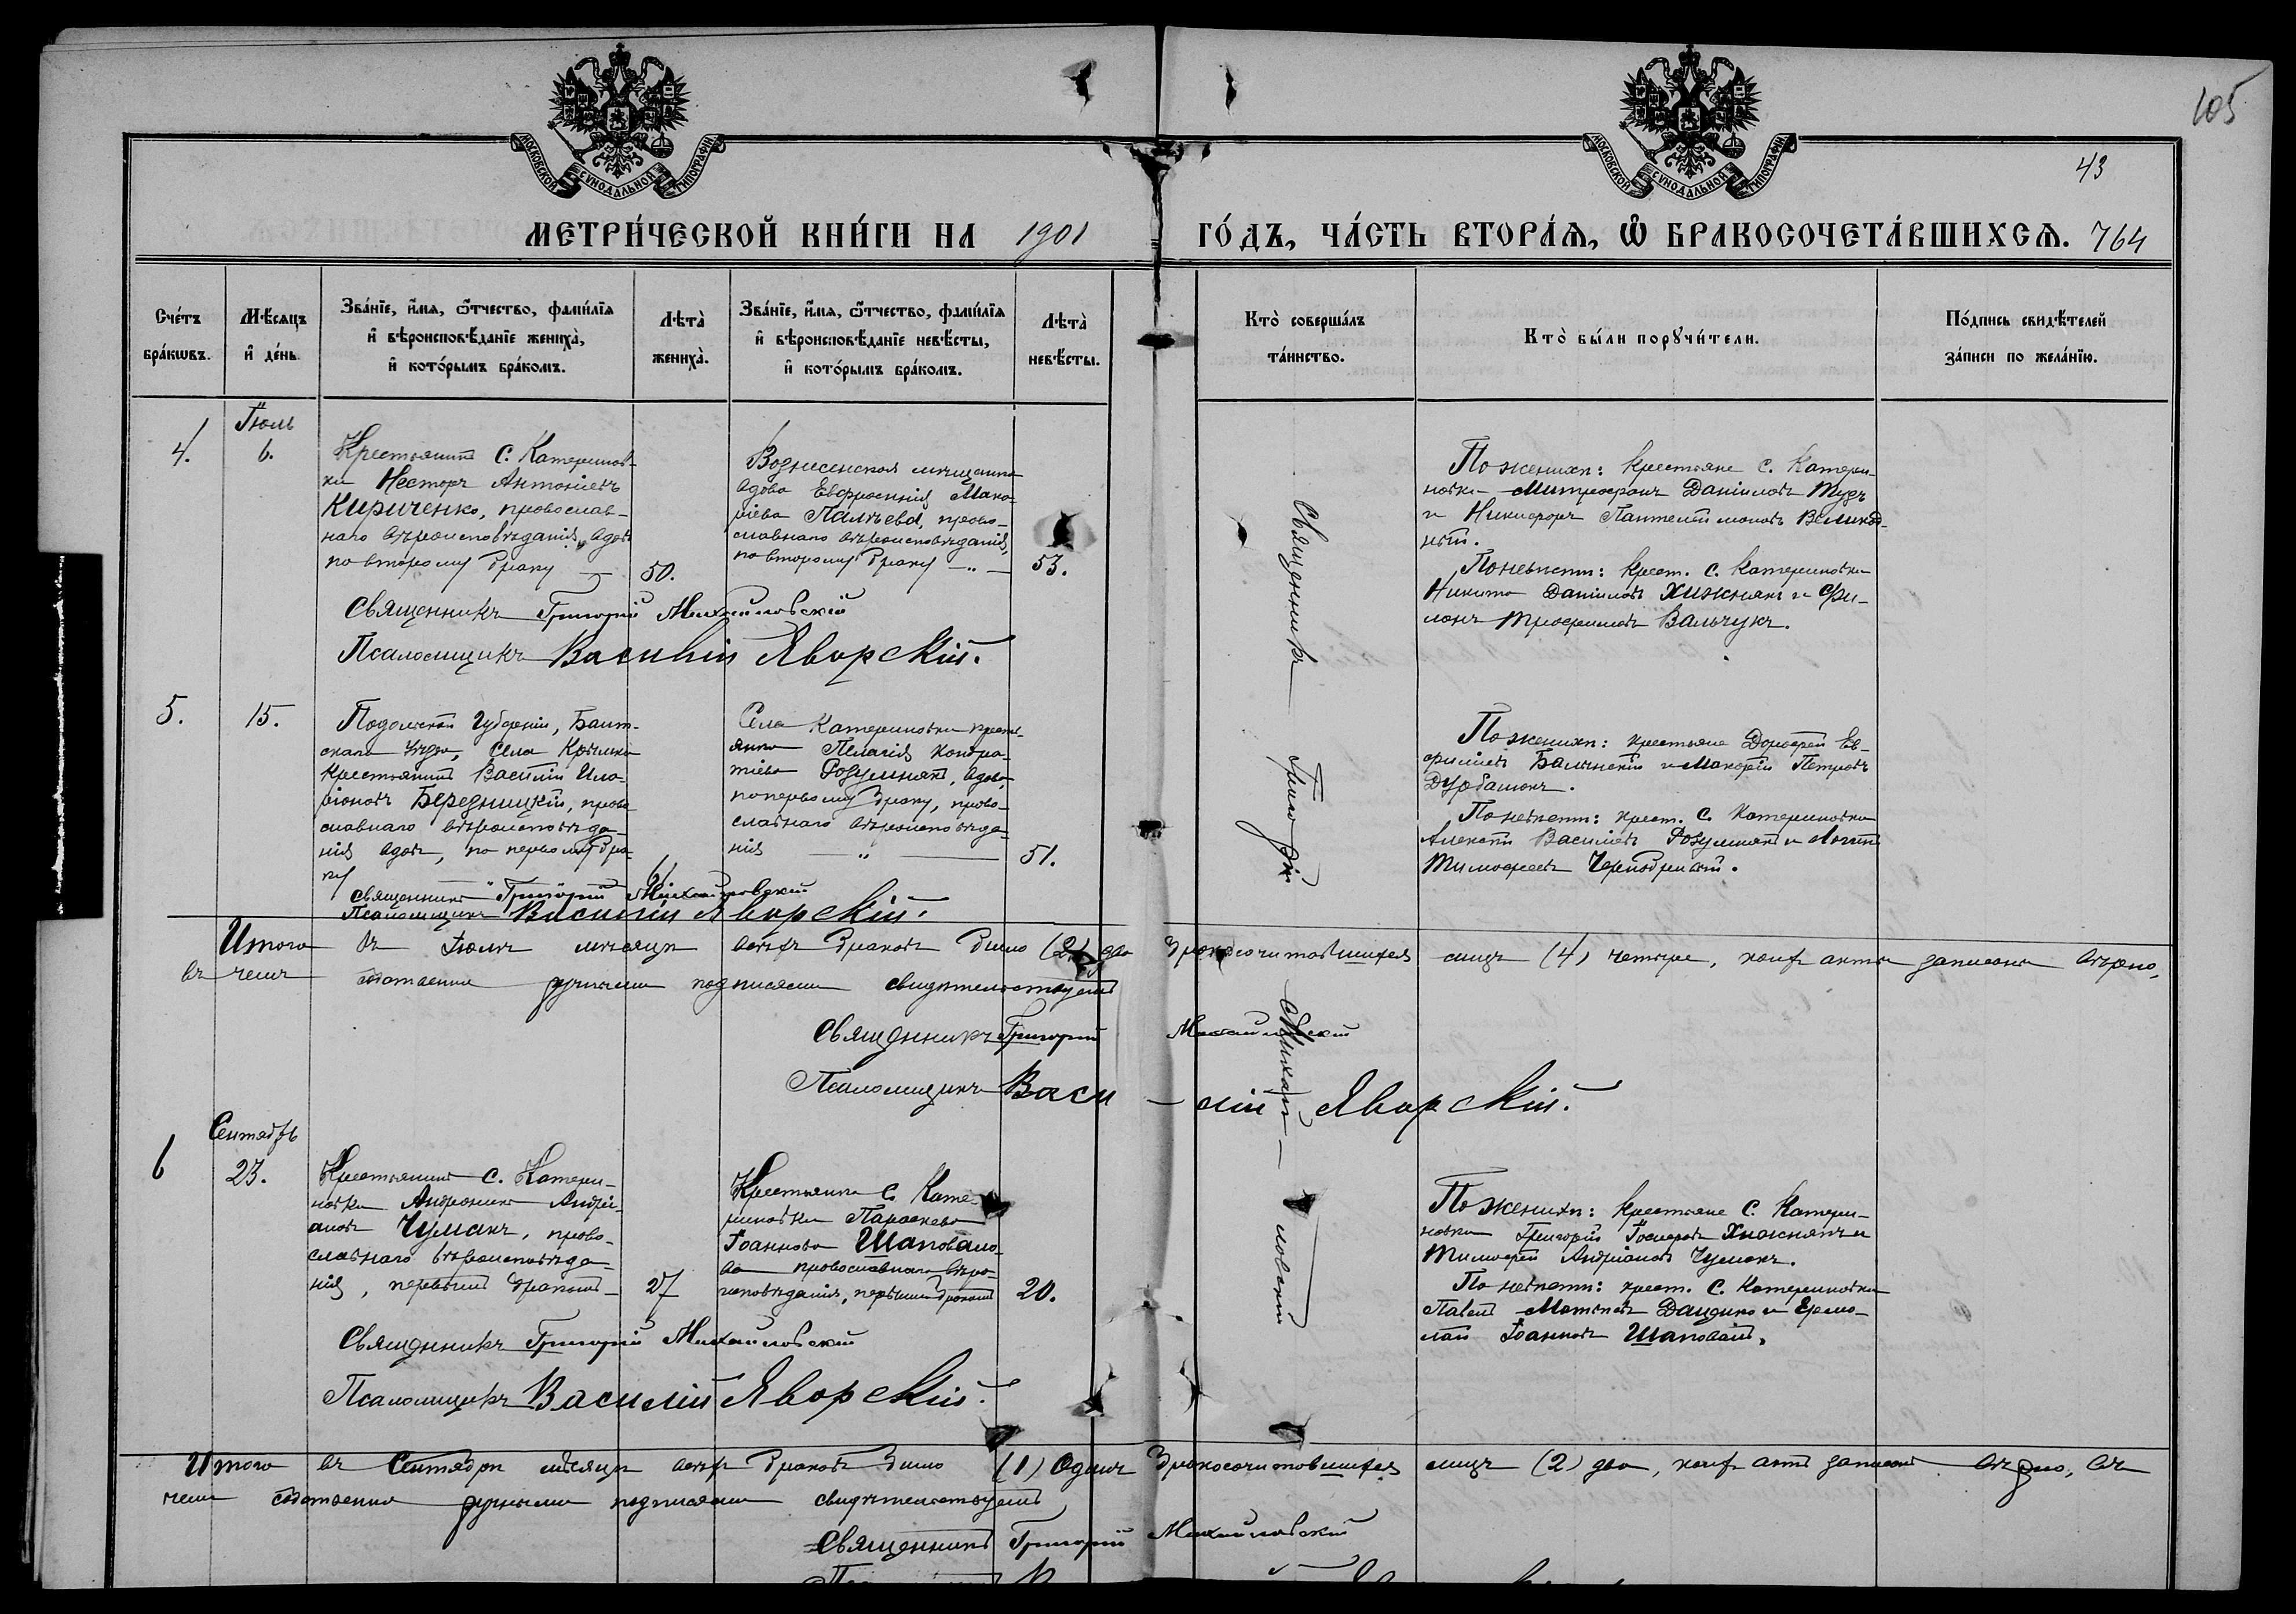 105
43
МОСКОВСКОЙ СѴНОДАЛЬНОЙ ТИПОГРАФІИ
МОСКОВСКОЙ СѴНОДАЛЬНОЙ ТИПОГРАФІИ
МЕТРИ́ЧЕСКОЙ КНИ́ГИ НА 1901 ГО́ДЪ, ЧА́СТЬ ВТОРА́Ѧ, Ѿ БРАКОСОЧЕТА́ВШИХСѦ. 764
Сче́тъ бра́кѡвъ.
Мѣ́сяцъ и҆ де́нь.
Зва́нїе, и҆́мѧ, ѻ҆́тчество, фами́лїѧ
и҆ вѣроисповѣ́данїе жениха̀,
и҆ кото́рымъ бра́комъ.
Лѣта̀ жениха̀.
Зва́нїе, и҆́мѧ, ѻ҆́тчество, фами́лїѧ
и҆ вѣроисповѣ́данїе невѣ́сты,
и҆ кото́рымъ бра́комъ.
Лѣта̀ невѣ́сты.
Кто̀ соверша́лъ
та́инство.
Кто̀ бы́ли порꙋчи́тели.
По́дпись свидѣ́телей
за́писи по жела́нїю.
Іюль
4.
6.
Крестьянинъ С. Катеринов-
ки Несторъ Антоніевъ
Кириченко, православ-
наго вѣроисповѣданія, вдовъ
по второму браку —
50.
Вознесенская мѣщанка
вдова Евфросинія Мака-
ріева Палѣева, право-
славнаго вѣроисповѣданія,
по второму браку —"—
53.
По женихѣ: крестьяне С. Катери-
новки Митрофанъ Даніиловъ Тузъ
и Никифоръ Пантелеимоновъ Великод-
ный.
По невѣстѣ: крест. С. Катериновки
Никита Даніиловъ Хижнякъ и Фи-
лонъ Трофимовъ Вальчукъ.
Священникъ Григорій Михайловскій
Псаломщикъ Василій Яворскій.
5.
15.
Подольской Губерніи, Балт-
скаго Уѣзда, Села
Крестьянинъ Василій Ила-
ріоновъ Бередницкій, право-
славнаго вѣроисповѣда-
нія вдовъ, по первому бра-
ку
61
Села Катериновки крест-
янка Пелагія Кондра-
тіева Розумнякъ, вдова,
по первому браку, право-
славнаго вѣроисповѣда-
нія — " —
51.
По женихѣ: крестьяне Дорофей Ев-
фиміевъ Балынскій и Макарій Петровъ
Дурбалюкъ.
По невѣстѣ: крест. С. Катериновки
Алексѣй Василіевъ Розумнякъ и Логинъ
Тимофеевъ
Священникъ Григорій Михайловскій
Псаломщикъ Василій Яворскій.
Священникъ Григорій Михай-ловскій
Итого въ Іюлѣ мѣсяцѣ всѣхъ браковъ было (2) два бракосочитавшихся лицъ (4) четыре, коихъ акты записаны вѣрно,
въ чемъ собственно ручными подписями свидѣтельствуемъ
Священникъ Григорій Михайловскій
Псаломщикъ Васи-лій Яворскій.
Сентябрь
6
23.
Крестьянинъ С. Катери-
новки Андроникъ Андрі-
ановъ Чумакъ, право-
славнаго вѣроисповѣда-
нія, первымъ бракомъ —
27
Крестьянка С. Кате-
риновки Параскева
Іоаннова Шаповало-
ва православнаго вѣро-
исповѣданія, первымъ бракомъ
20.
По женихѣ: крестьяне С. Катери-
новки Григорій Іосифовъ Хижнякъ и
Тимофей Андріановъ Чумакъ.
По невѣстѣ: крест. С. Катериновки
Павелъ Матвѣевъ Даценко и Ермо-
лай Іоанновъ Шаповалъ.
Священникъ Григорій Михайловскій
Псаломщикъ Василій Яворскій.
Итого въ Сентябрѣ мѣсяцѣ всѣхъ браковъ было (1) Одинъ бракосочитавшихся лицъ (2) два, коихъ актъ записанъ вѣрно, въ
чемъ собственно ручными подписями свидѣтельствуемъ
Священникъ Григорій Михайловскій